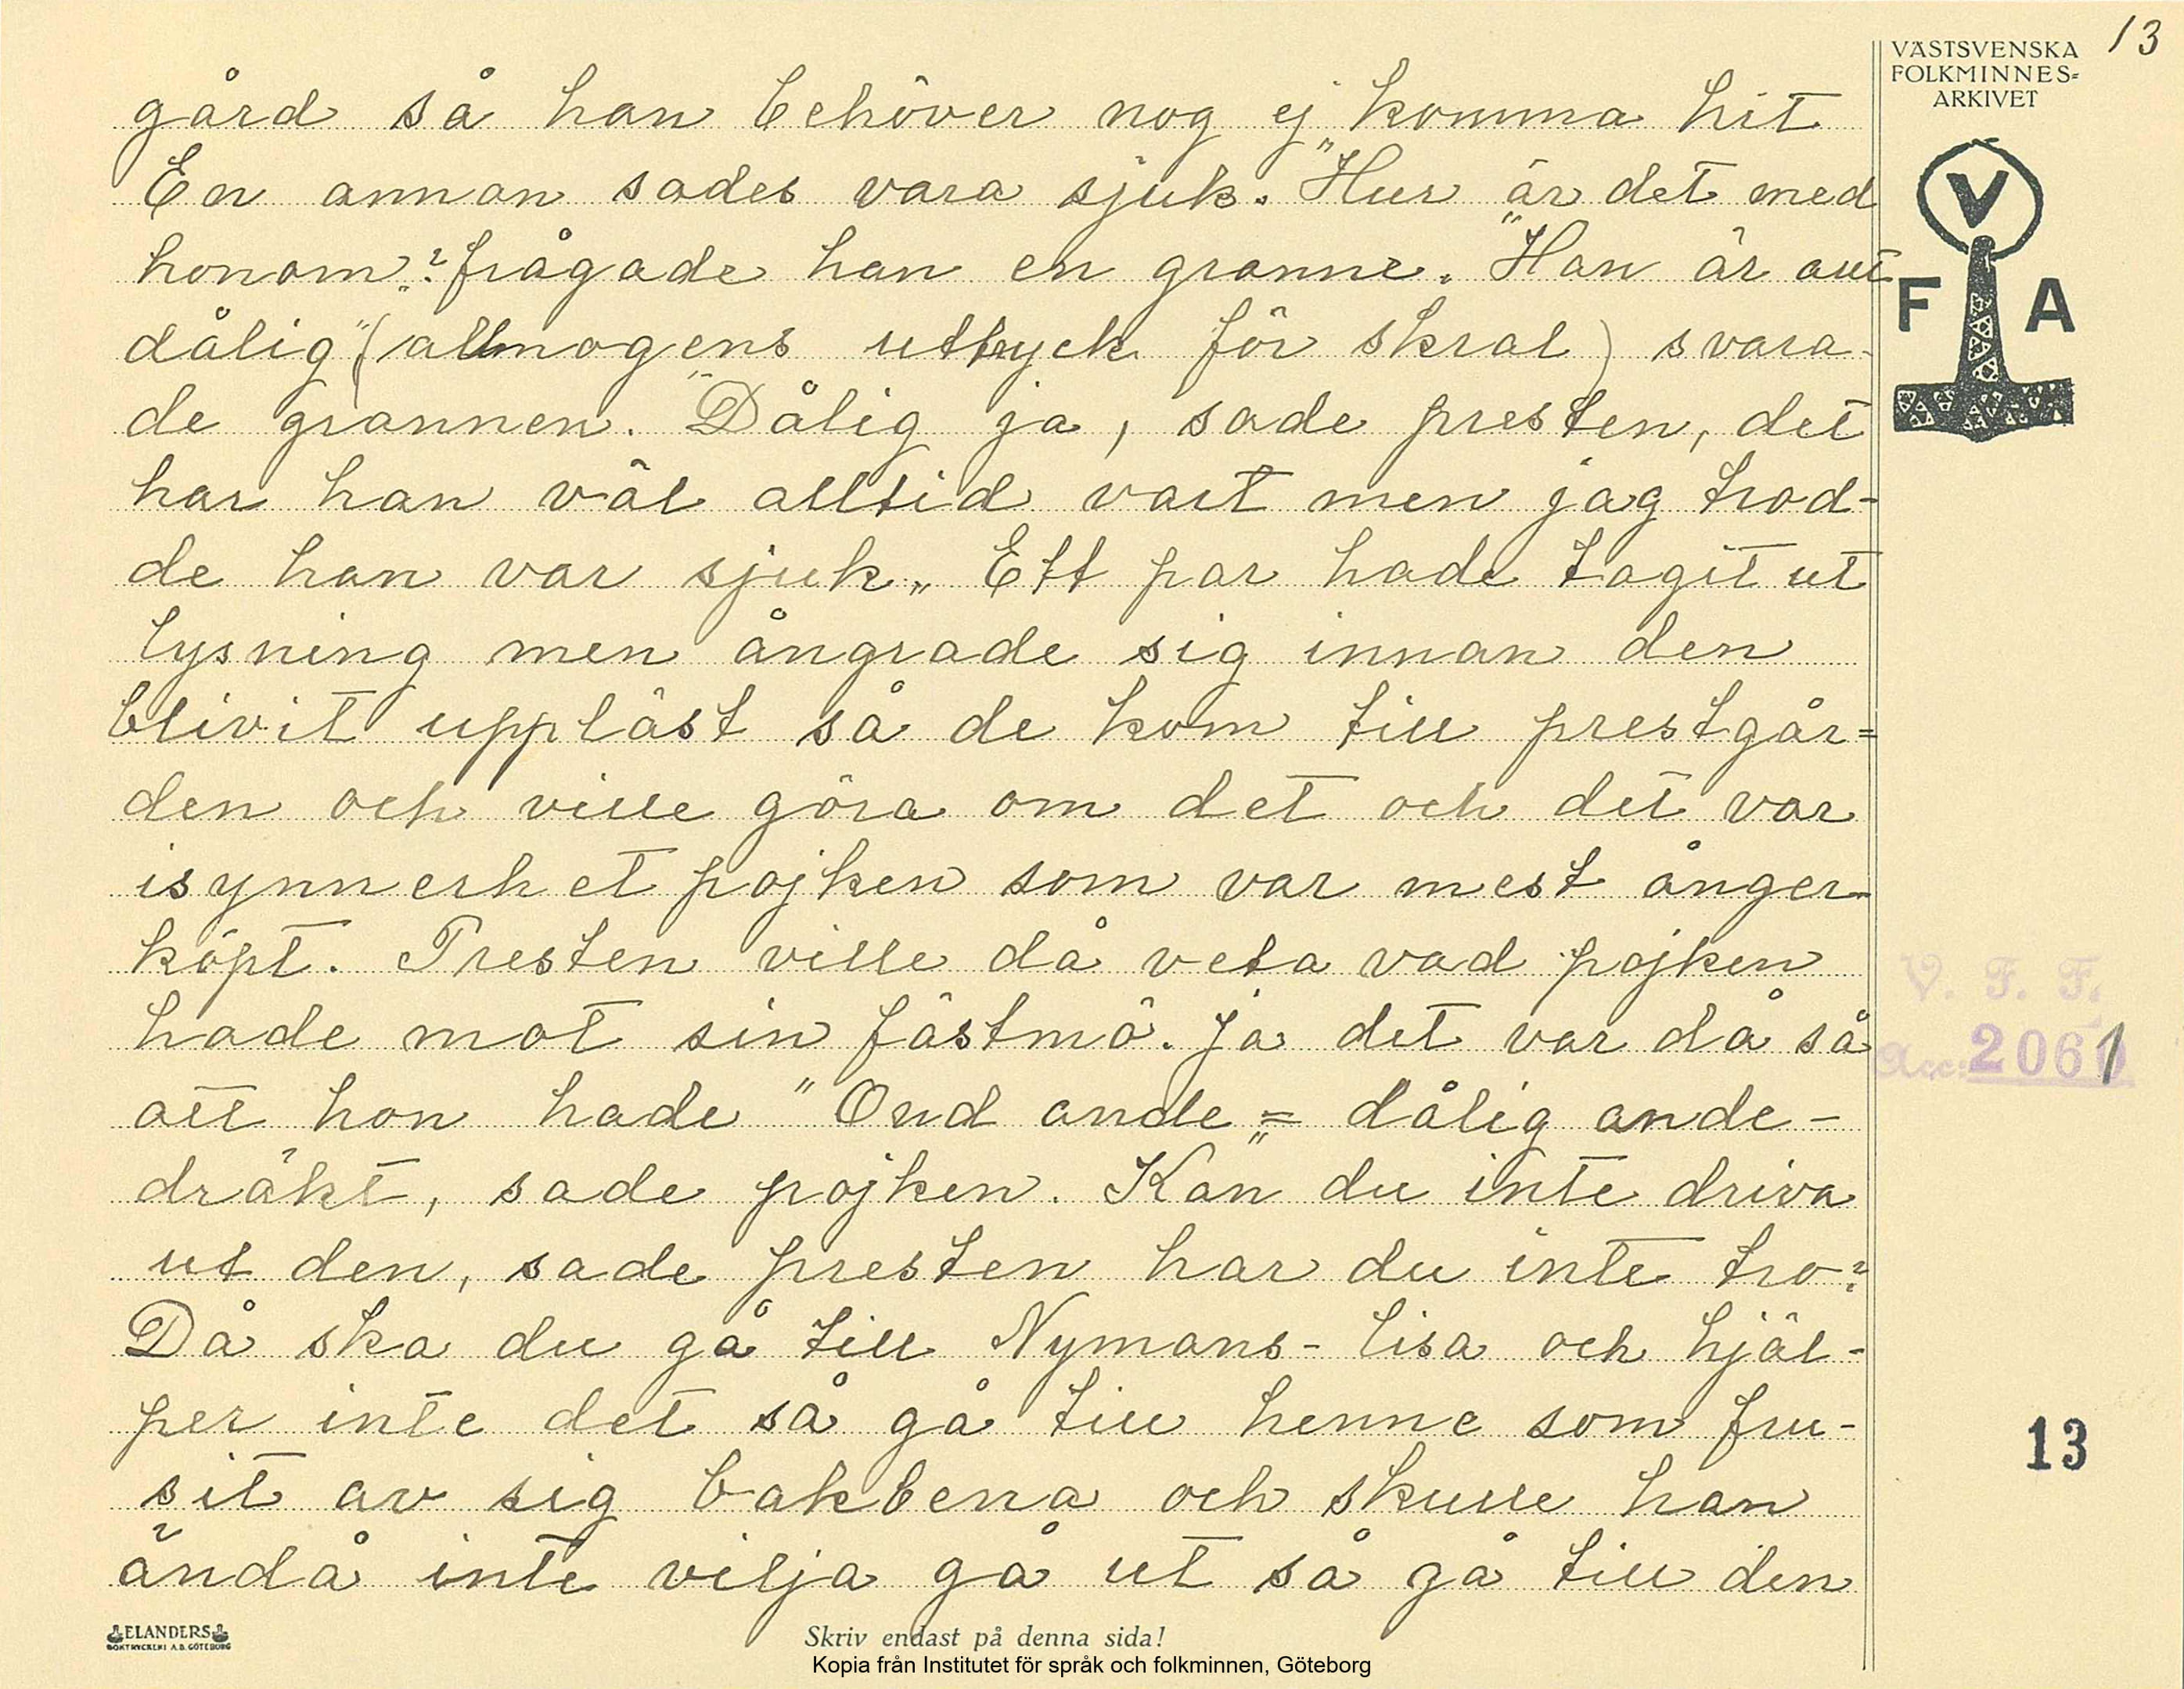 13
VÄSTSVENSKA
FOLKMINNES=
ARKIVET
V
F A
gård så han behöver nog ej komma hit
En annan sades vara sjuk. "Hur är det med
honom?" frågade han en granne. "Han är
dålig" (allmogens uttryck för skral) svara-
de grannen. "Dålig ja, sade presten, det
har han väl alltid vart men jag trod-
de han var sjuk" Ett par hade tagit ut
lysning men ångrade sig innan den
blivit uppläst så de kom till prestgår=
den och ville göra om det och det var
isynnerhet pojken som var mest ånger-
köpt. Presten ville då veta vad pojken
hade mot sin fästmö. Ja det var då så
att hon hade "Ond ande" = dålig ande-
dräkt, sade pojken. Kan du inte driva
ut den, sade presten har du inte tro?
Då ska du gå till Nymans-Lisa och hjäl-
per inte det så gå till henne som fru-
sit av sig bakbena och skulle han
ändå inte vilja gå ut så gå till den
V. F. F.
Acc: 2061
13
ELANDERS
BOKTRYCKERI A.B. GÖTEBORG
Skriv endast på denna sida!
Kopia från Institutet för språk och folkminnen, Göteborg